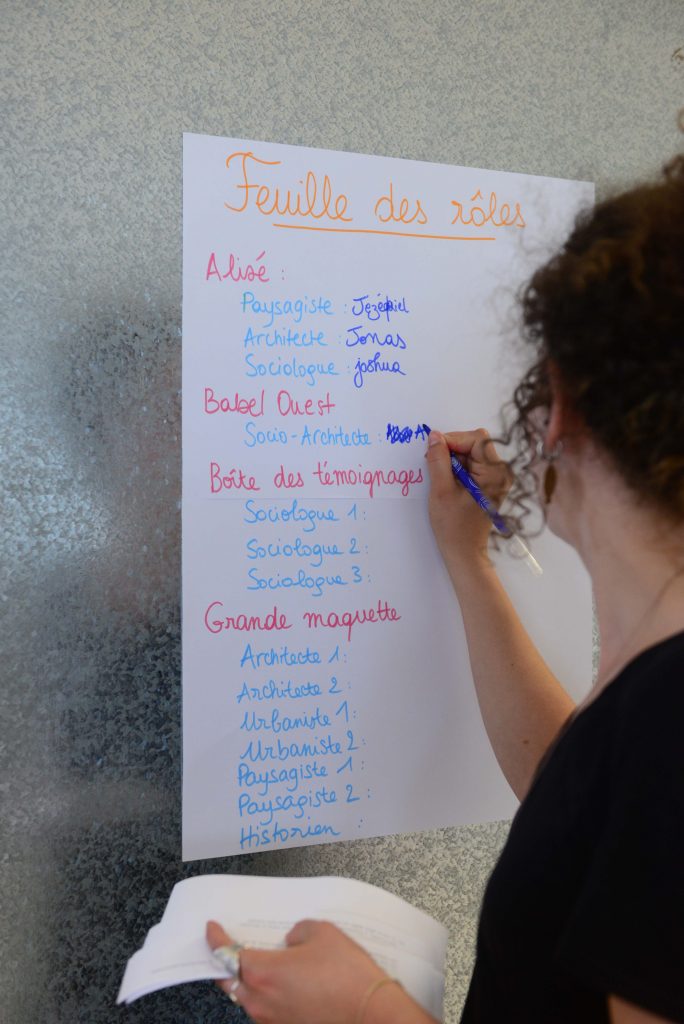 Feuille des rôles
Alisé :
Paysagiste : Jézékiel
Architecte : Jonas
Sociologue : joshua
Babel Ouest
Socio-Architecte : A
Boîte des témoignages
Sociologue 1 :
Sociologue 2 :
Sociologue 3 :
Grande maquette
Architecte 1 :
Architecte 2 :
Urbaniste 1 :
Urbaniste 2 :
Paysagiste 1 :
Paysagiste 2 :
Historien :